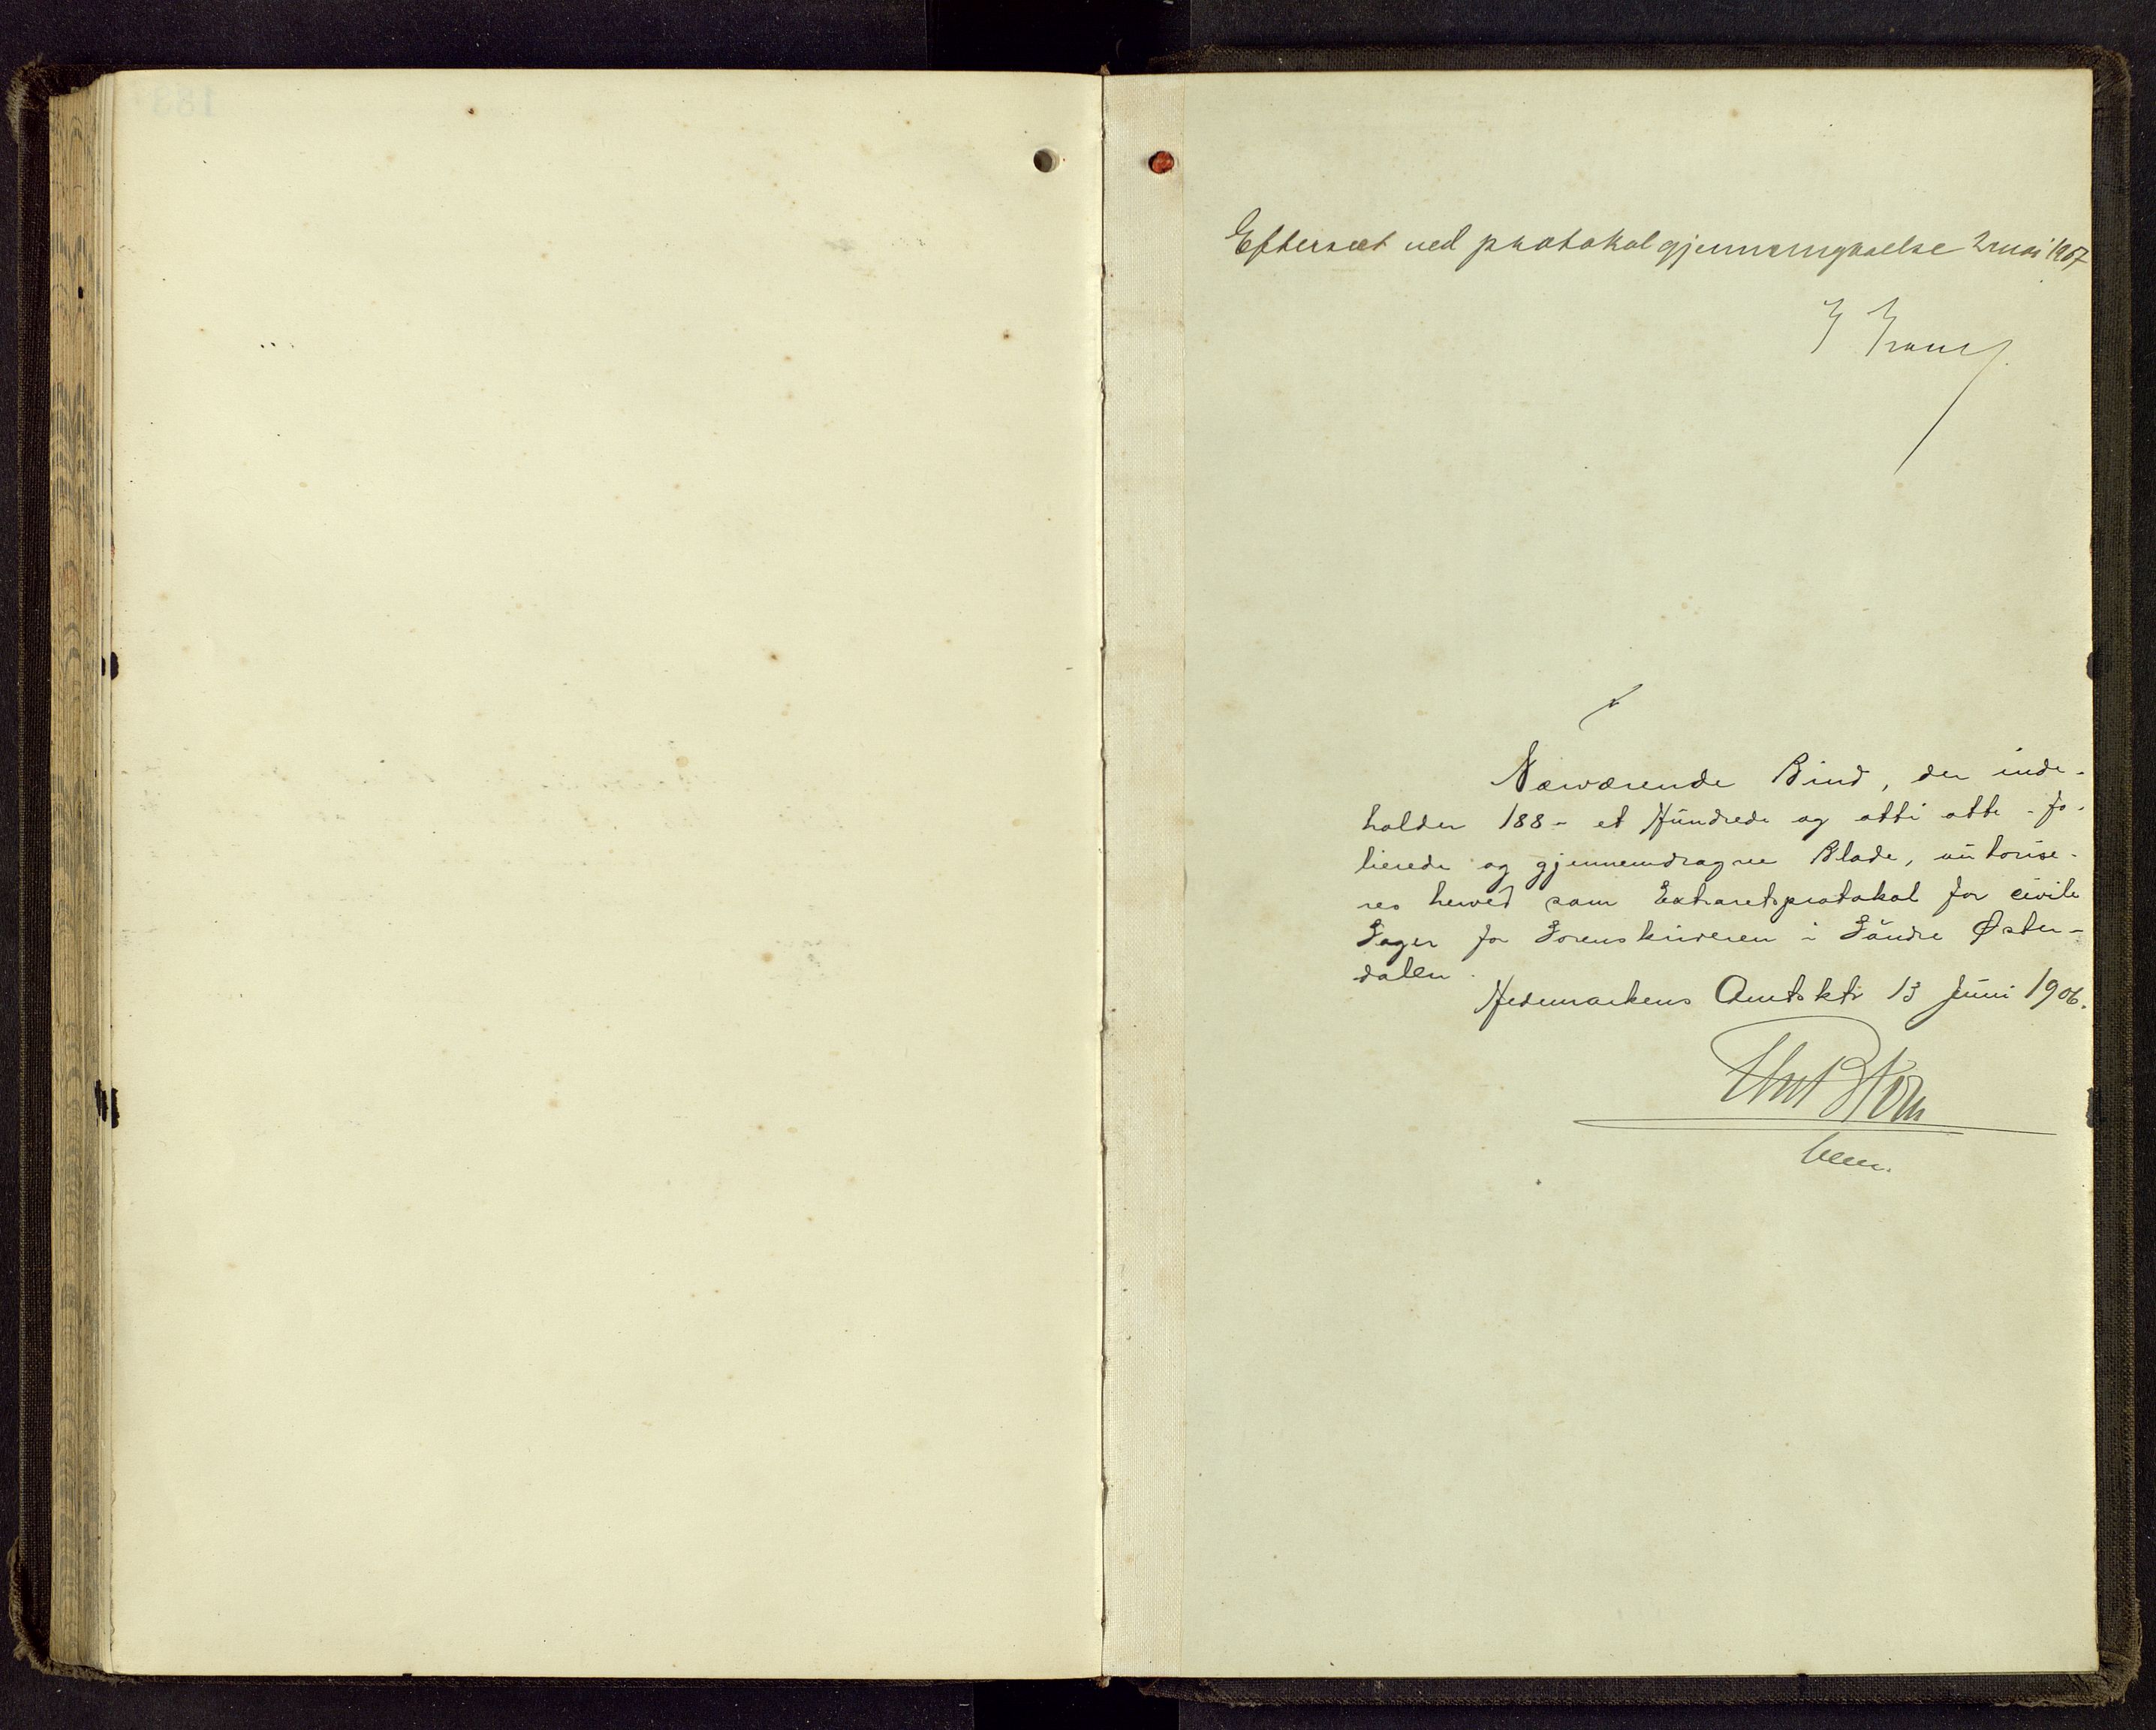 Efterseet ved protokolgjennemgaaelse 2 mai 1907
Nærværende Bind, der inde-
holder 188 - et Hundrede og otti otte - fo-
lierede og gjennemdragne Blade, autorise-
res herved som Extraretsprotokol for civile
Sager for Sorenskriveren i Søndre Øster-
dalen.
Hedemarkens Amtsktr 13 Juni 1906.